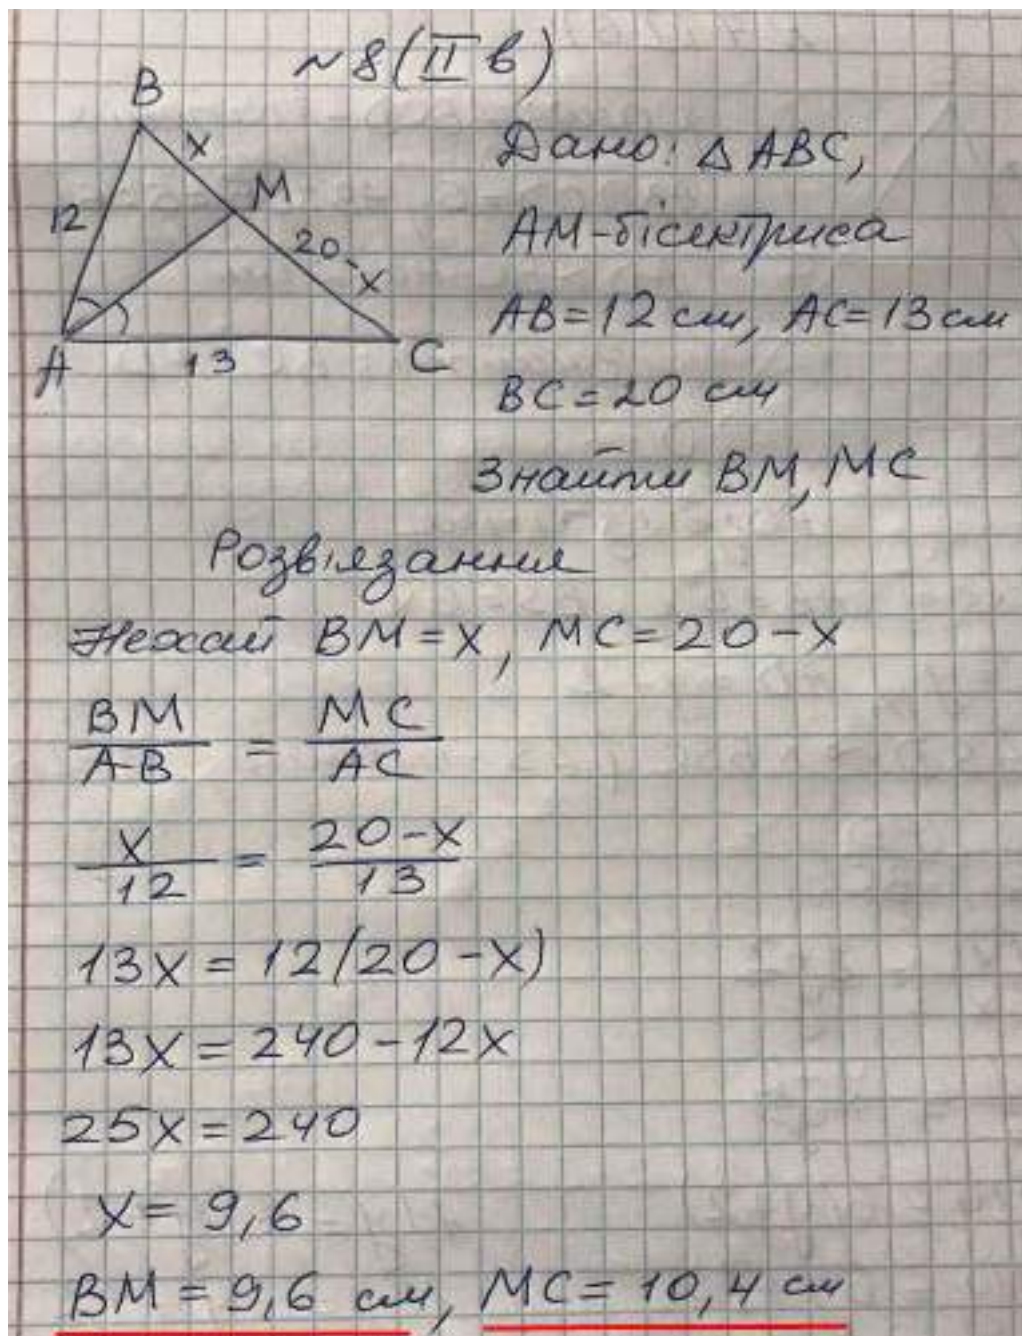 ~8(II в)
B
x
M
12
20-x
A
13
C
Дано: △ABC,
AM-бісектриса
AB=12 см, AC=13 см
BC=20 см
Знайти BM, MC
Розв'язання
Нехай BM=x, MC=20-x
BM/AB = MC/AC
x/12 = 20-x/13
13x=12(20-x)
13x=240-12x
25x=240
x=9,6
BM=9,6 см, MC=10,4 см